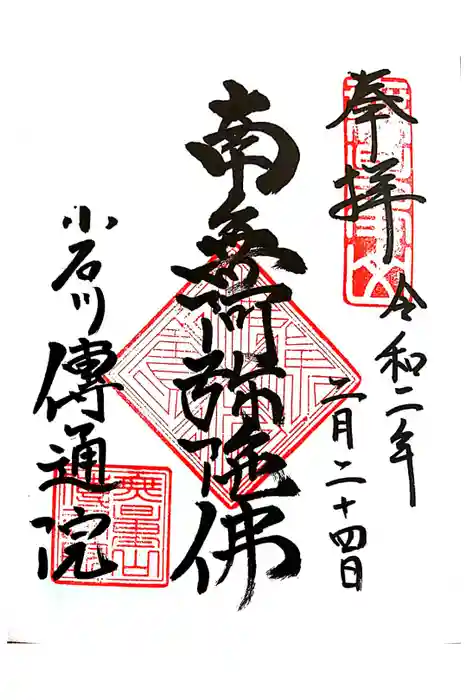 奉拝
令和二年
二月二十四日
南無阿弥陀佛
小石川
傳通院